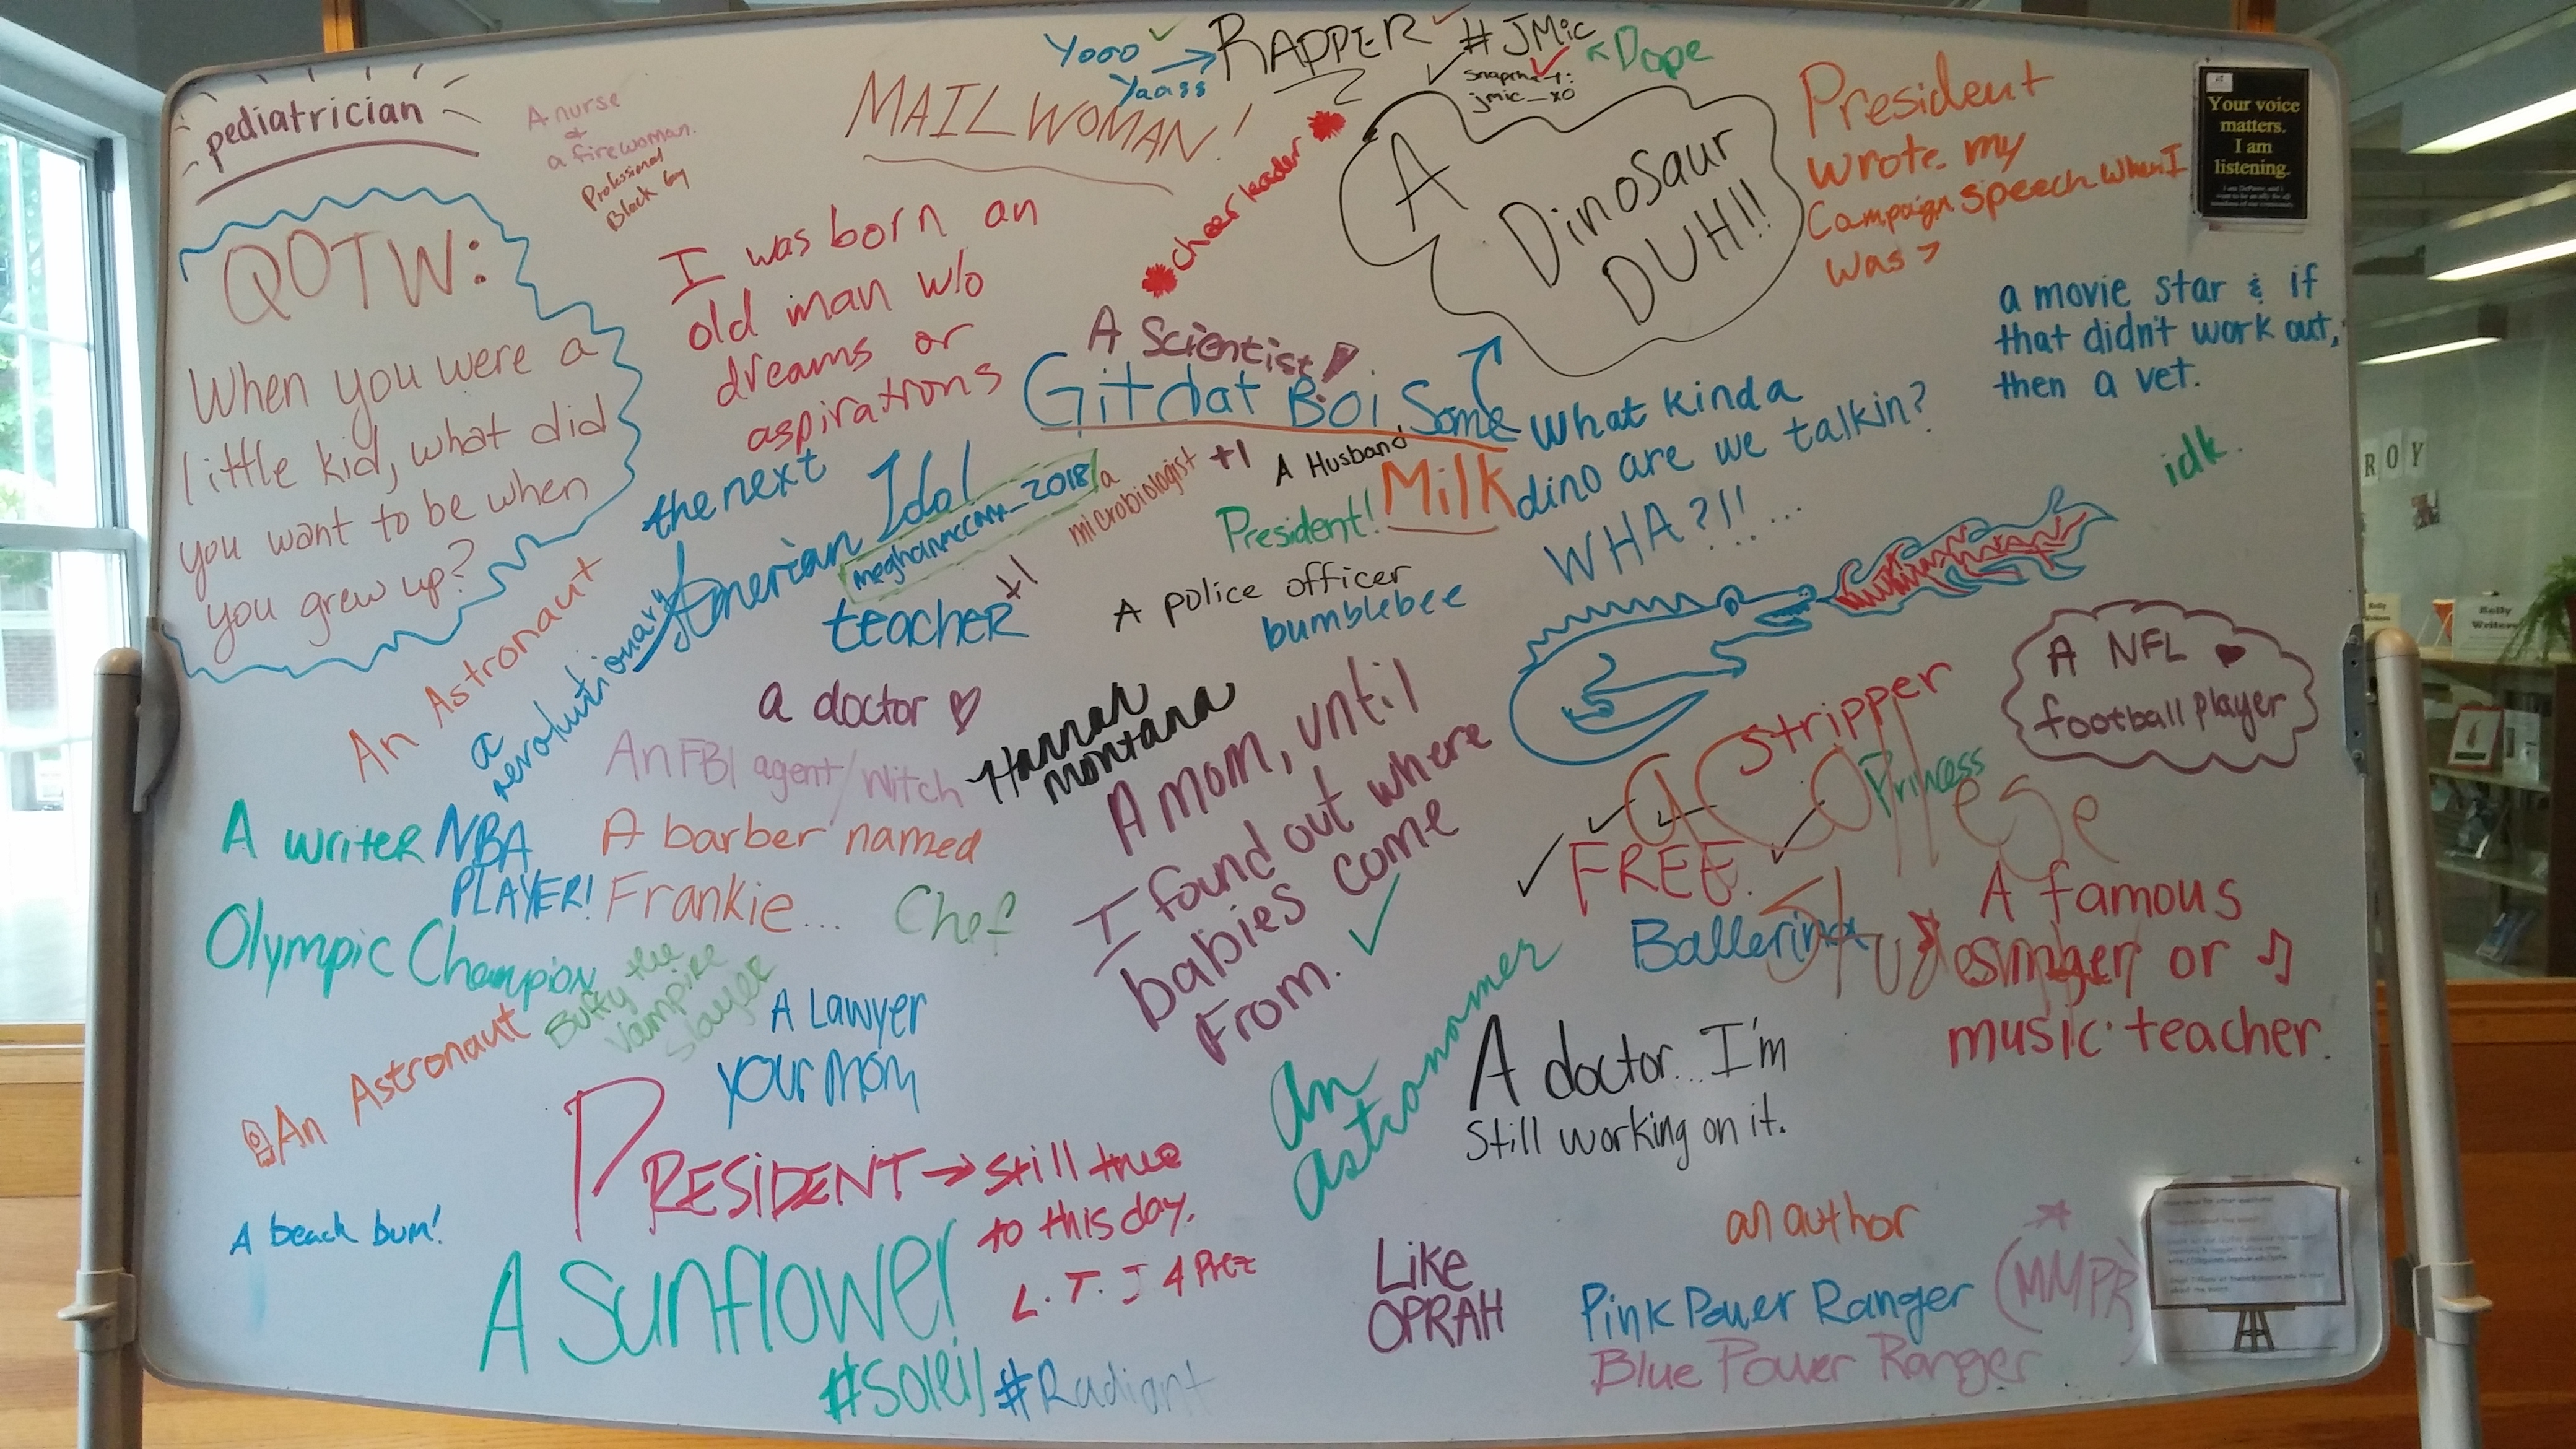 Yooo
Yaass
RAPPER
#JMic
Dope
jmic_xo
pediatrician
A nurse
&
a firewoman.
Professional
Black Guy
MAIL WOMAN!
cheerleader
A
Dinosaur
DUH!!
President
wrote my
Campaign speech when I
was 7
Your voice
matters.
I am
listening.
QOTW:
When you were a
little kid, what did
you want to be when
you grew up?
I was born an
old man w/o
dreams or
aspirations
A Scientist!
Git dat Boi Some
Milk
what kinda
dino are we talkin?
WHA?!!...
a movie star & if
that didn't work out,
then a vet.
idk.
ROY
the next
American Idol
a
microbiologist +1
A Husband
President!
teacher +1
A police officer
bumblebee
An Astronaut
a
revolutionary
a doctor
An FBI agent/Witch
Hannah
montana
A mom, until
I found out where
babies come
From.
A NFL
football player
a stripper
Princess
College
FREE.
Ballerina
A writer
NBA
PLAYER!
A barber named
Frankie...
Chef
Olympic Champion
Buffy the
Vampire
Slayer
A Lawyer
your mom
An Astronaut
A famous
singer or
music teacher.
An
astronomer
A doctor... I'm
Still working on it.
PRESIDENT → still true
to this day.
L.T.J 4 Prez
A beach bum!
A Sunflower
#Soleil #Radiant
Like
OPRAH
an author
Pink Power Ranger
(MMPR)
Blue Power Ranger